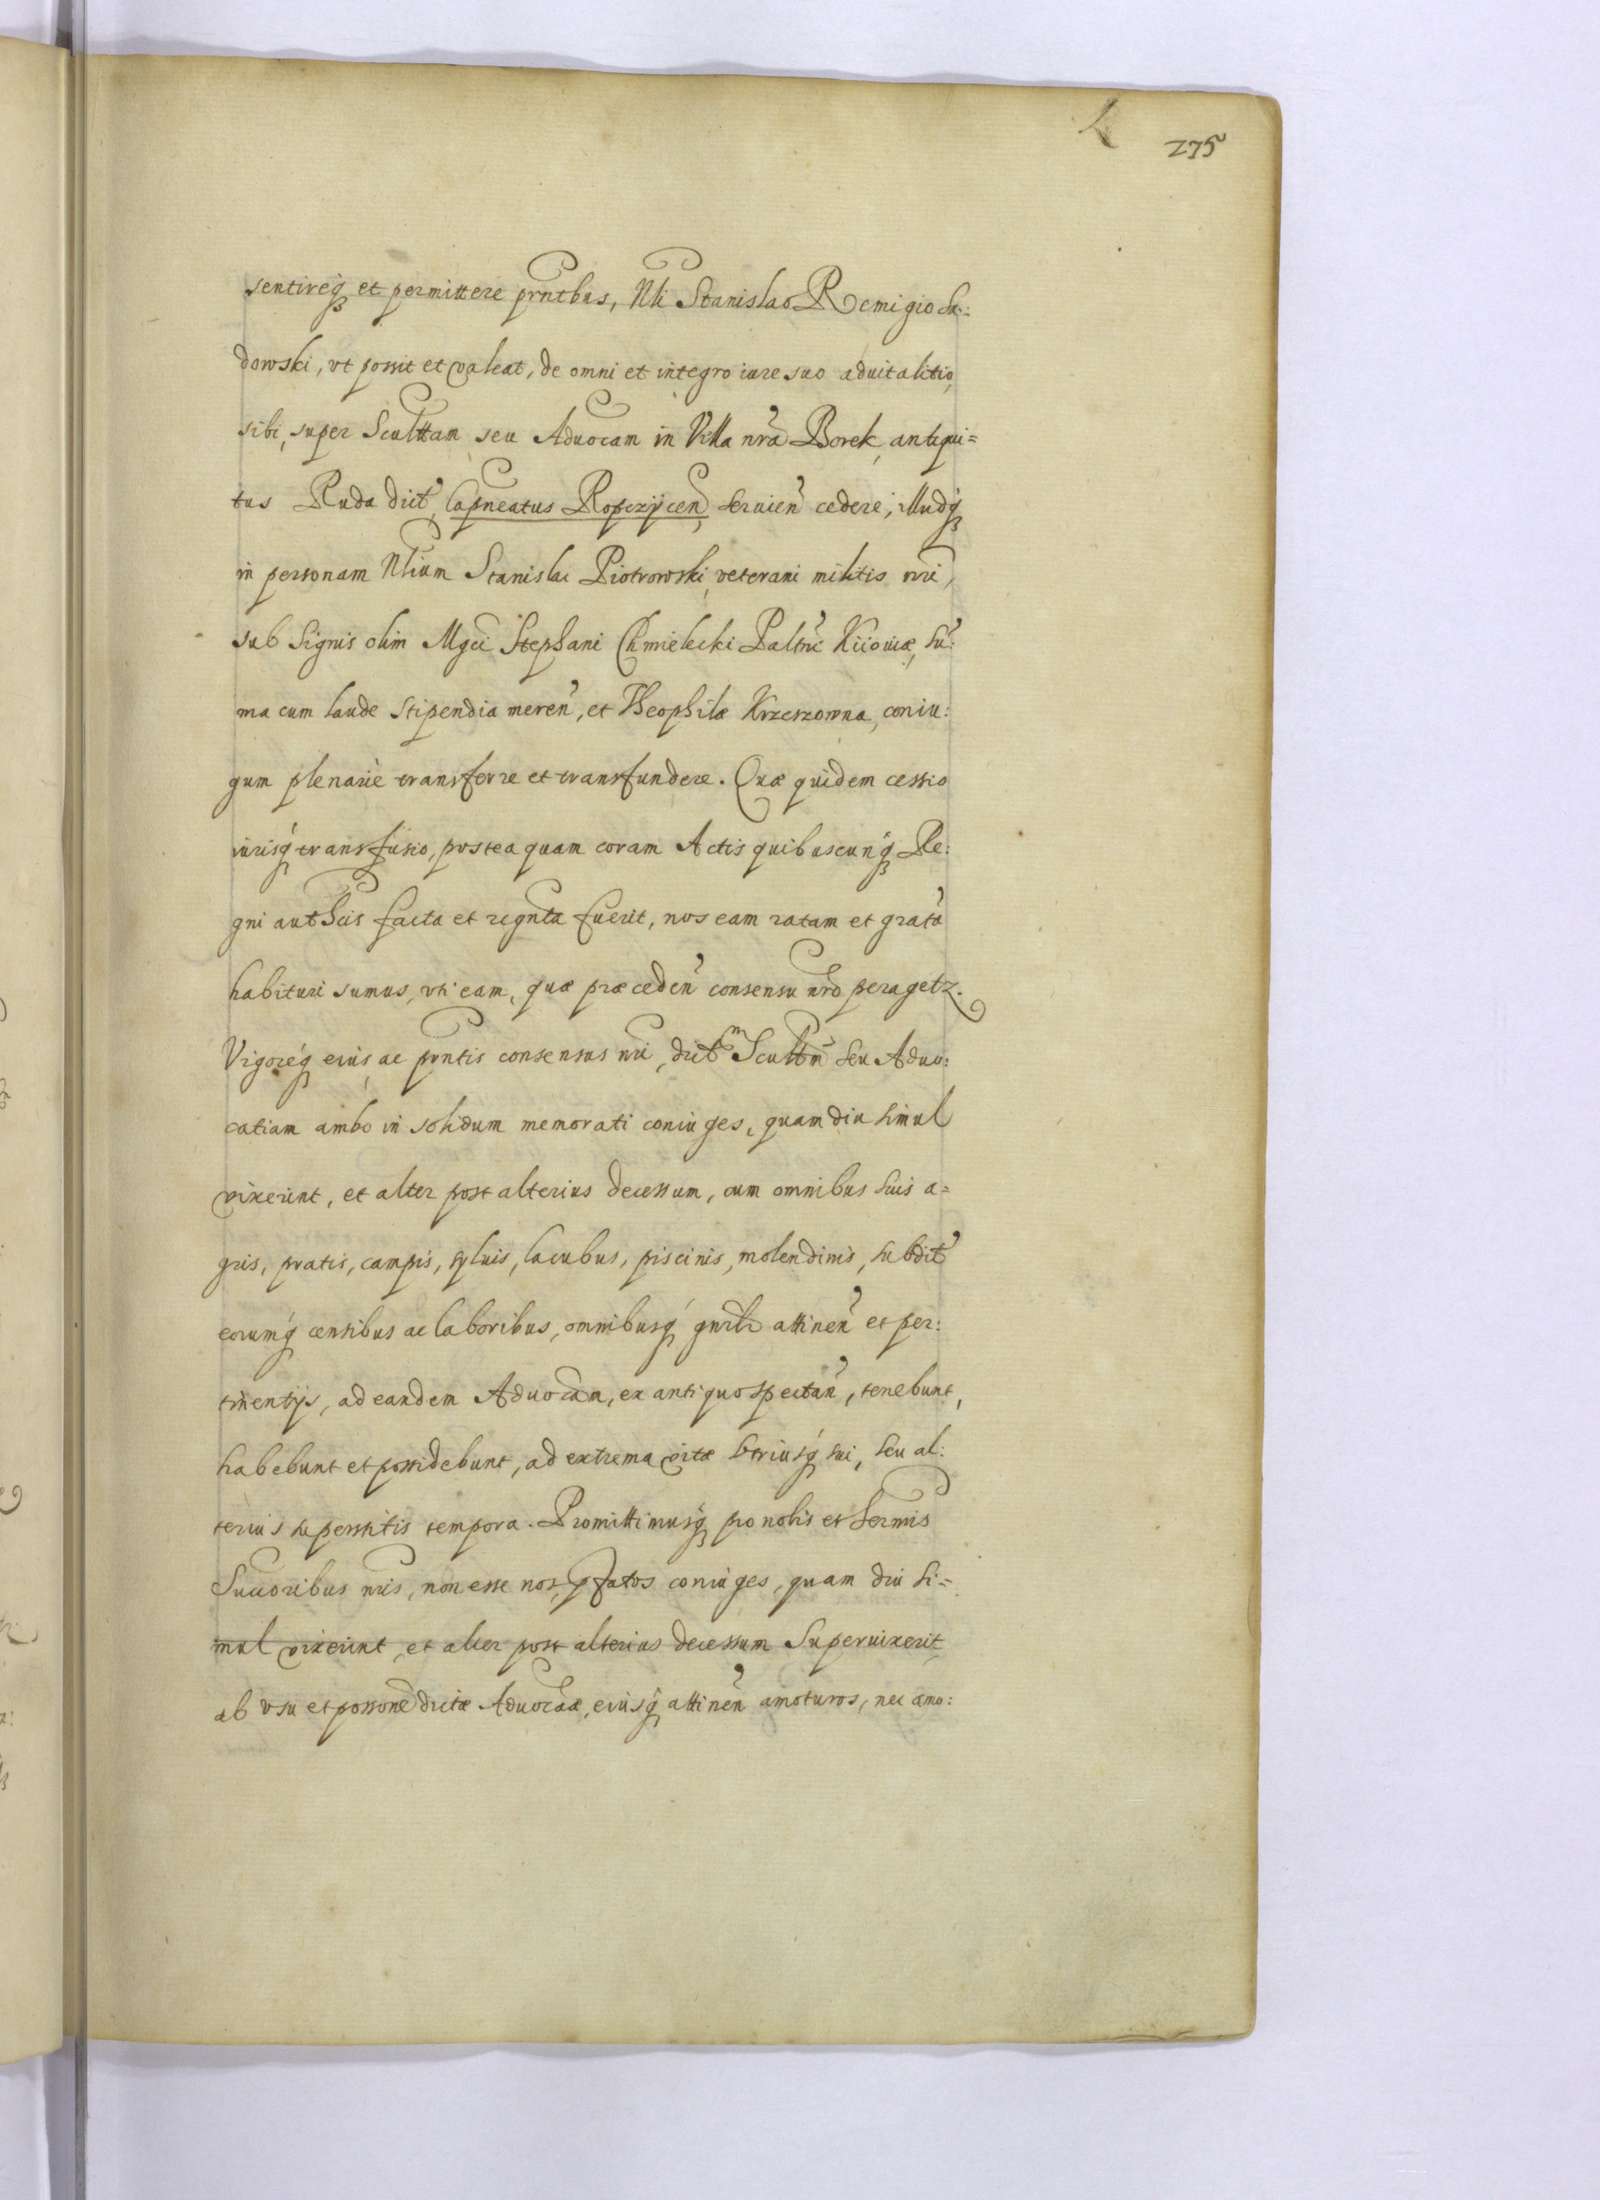 275
sentireq́ et permittere prntbus, Nli Stanislao Remigio Sa:
dowski, vt possit et valeat, de omni et integro iure suo aduitalitio,
sibi, super Scultam seu Aduocam in Villa nrã Borek, antiqui=
tus Ruda dict, Capneatus Ropczÿcen̄ seruien̄ cedere, illudq́
in personam Nlium Stanislai Piotrowski, veterani militis nri,
sub Signis olim Mgci Stephani Chmielecki Paltni Kiiouiæ, su:
ma cum laude stipendia meren̄, et Theophilæ Krzeszowna, coniu:
gum plenariè transferre et transfundere. Quæ quidem cessio
iurisq́ transfusio, postea quam coram Actis quibuscunq́ Re:
gni authcis facta et regnta fuerit, nos eam ratam et gratã
habituri sumus, vti eam, quæ præceden̄ consensu nrõ peragetz.
Vigoreq́ eius ac pnntis consensus nri, dictm Scultm̃ seu Aduo:
catiam ambo in solidum memorati coniuges, quam diu simul
vixerint, et alter post alterius decessum, cum omnibus suis a=
gris, pratis, campis, syluis, lacubus, piscinis, molendinis, subdit
eorumq́ censibus ac laboribus, omnibusq́ gnrlr attinen̄ et per:
tinentijs, ad eandem Aduocam, ex antiquo spectan̄, tenebunt,
habebunt et possidebunt, ad extrema vitæ vtriusq́ sui, seu al:
terius superstitis tempora. Promittimusq́ pro nobis et Sermis
Succoribus nris, non esse nos, pfatos coniuges, quam diu si=
mul vixerint, et alter post alterius decessum superuixerit,
ab vsu et possonẽ dictæ Aduocaæ, eiusq́ attinen̄ amoturos, nec amo: